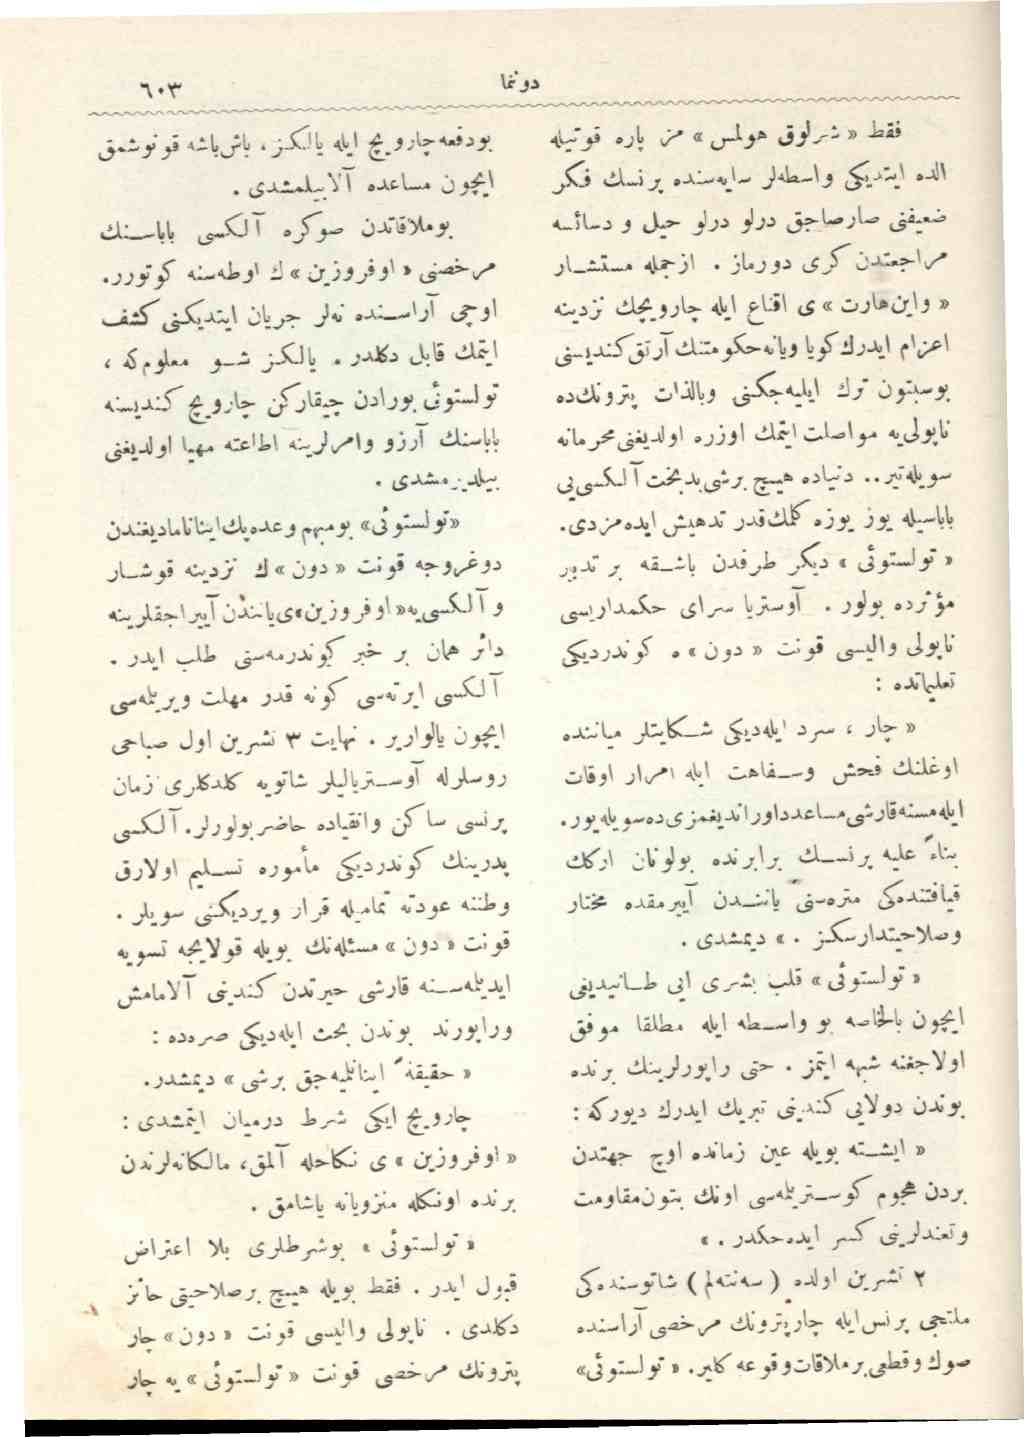 دوننما
٦٠٣
فقط « شرلوق هولمس » مز پاره قوتيله
الده ايتديكى واسطه‌لر سايه‌سنده پرنسك فكر
ضعيفنى صارصاجق درلو درلو حيل و دسائسه
مراجعتدن كرى دورماز . ازجمله مستشـار
« واين‌هارت » ى اقناع ايله چارويچك نزدينه
اعزام ايدرك كويا ويانه‌حكومتنك آرتق كنديسنى
بوسبتون ترك ايليه‌جكنى وبالذات پترونك‌ده
ناپولى‌يه مواصلت ايتمك اوزره اولديغنى محرمانه
سويله‌تير.. دنياده هيچ برشى بدبخت آلكسى‌يى
باباسيله يوز يوزه كلمك‌قدر تدهيش ايده‌مزدى.
« تولستوئى » ديكر طرفدن باشـقه بر تدبير
مؤثرده بولور . آوستريا سراى حكمداريسى
ناپولى واليسى قونت « دون » ه كوندرديكى
تعليماتده :
« چار ، سرد ايله‌ديكى شـكايتلر ميانـنده
اوغلنك فحش وسـفاهت ايله امرار اوقات
ايله‌مسنه‌قارشى‌مساعدداوراندیغمزى‌ده‌سويله‌يور.
بناءً عليه پرنسـك برابرنده بولونان اركك
قيافتنده‌كى متره‌سنى ياننـدن آييرمقده مختار
وصلاحيتدارسكز . » ديمشدى .
« تولستوئى » قلب بشرى ايى طـانيديغى
ايچون بالخاصه بو واسـطه ايله مطلقا موفق
اولاجغنه شبهه ايتمز . حتى راپورلرينك برنده
بوندن دولايى كندينى تبريك ايدرك ديوركه :
« ايشـته بويله عين زمانده اوچ جهتدن
بردن هجوم كوسـتريلمه‌سى اونك بتون‌مقاومت
وتعندلرينى كسر ايده‌جكدر . »
٢ تشرين اولده ( سه‌نته‌لم ) شاتوسنده‌كى
ملتجى پرنس‌ايله چارپترونك مرخصى آراسنده
صوك وقطعى برملاقات‌وقوعه كلير. « تولستوئى»
بودفعه‌چارويچ ايله يالـكـز ، باش‌باشه قونوشمق
ايچون مساعده آلابيلمشدى .
بوملاقاتدن صوكره آلكسى باباسـنك
مرخصنى « اوفروزين » ك اوطه‌سنه كوتورر.
اوچى آراسـنده نه‌لر جريان ايتديكنى كشف
ايتمك قابل دكلدر . يالـكـز شـو معلوم‌كه ،
تولستوئى بورادن چيقاركن چارويچ كنديسنه
باباسنك آرزو وامرلرينه اطاعته مهيا اولديغنى
بيلديرمشدى .
«تولستوئى» بومبهم وعده‌پك‌اينانامادیغندن
دوغروجه قونت « دون » ك نزدينه قوشـار
و آلكسى‌يه« اوفروزين»ى‌ياندن آييراجقلرينه
دائر همان بر خبر كوندرمه‌سنى طلب ايدر .
آلكسى ايرته‌سى كونه قدر مهلت ويريلمه‌سى
ايچون يالواربر . نهايت ٣ تشرين اول صباحى
روسلرله آوسـترياليلر شاتويه كلدكلرى زمان
پرنسى ساكن وانقياده حاضربولورلر. آلكسى
پدرينك كوندرديكى مأموره تسـليم اولارق
وطننه عودته تماميله قرار ويرديكنى سويلر .
قونت « دون » مسئله‌نك بويله قولايجه تسويه
ايديلمه‌سـنه قارشى حيرتدن كندينى آلامامش
وراپورند بوندن بحث ايله‌ديكى صره‌ده :
« حقيقةً اينانلميه‌جق برشى » ديمشدر.
چارويچ ايكى شرط درميان ايتمشدى :
« اوفروزين » ى نكاحله آلمق، مالكانه‌لرندن
برنده اونكله منزويانه ياشامق .
« تولستوئى » بوشرطلرى بلا اعتراض
قبول ايدر . فقط بويله هيچ برصلاحيتى حائز
دكلدى . ناپولى واليسى قونت « دون » چار
پترونك مرخصى قونت « تولستوئى » يه چار